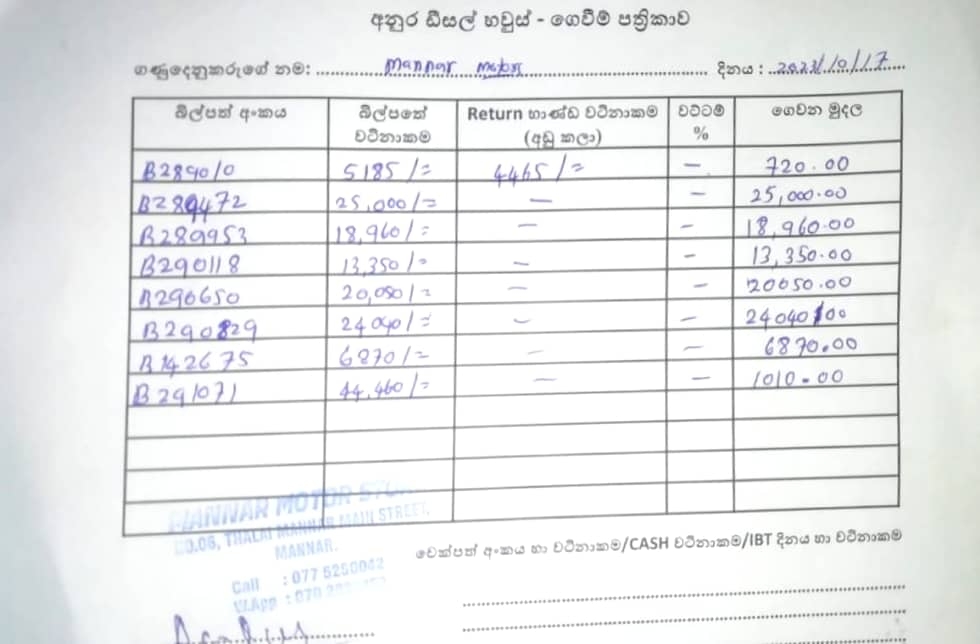 අනුර ඩීසල් හවුස් - ගෙවීම් පත්‍රිකාව
ගණුදෙනුකරුගේ නම: Mannar දිනය : 2023/10/17
බිල්පත් අංකය බිල්පතේ වටිනාකම Return භාණ්ඩ වටිනාකම (අඩු කලා) වට්ටම් % ගෙවන මුදල
B289010 5185/= 4465/= — 720.00
B289472 25,000/= — — 25,000.00
B289953 18,960/= — — 18,960.00
B290118 13,350/= — — 13,350.00
B290650 20,050/= — — 20050.00
B290829 24040/= — — 24040.00
B142675 6870/= — — 6870.00
B291071 44,460/= — — 1010.00
MANNAR MOTOR
NO.06, THALAI MANNAR MAIN STREET,
MANNAR.
Call : 077 5250042
W.App : 070
චෙක්පත් අංකය හා වටිනාකම/CASH වටිනාකම/IBT දිනය හා වටිනාකම